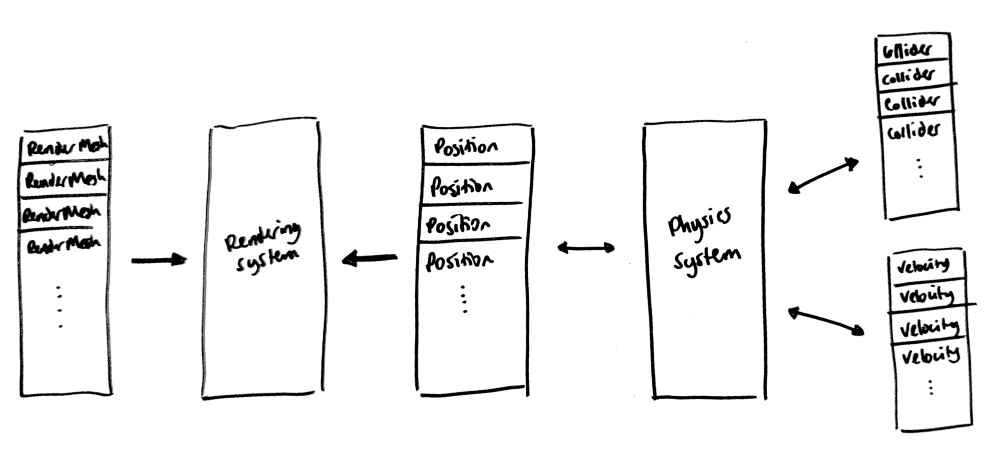 RenderMesh
RenderMesh
RenderMesh
RenderMesh
Rendering
system
Position
Position
Position
Position
Physics
System
Collider
Collider
Collider
Collider
Velocity
Velocity
Velocity
Velocity